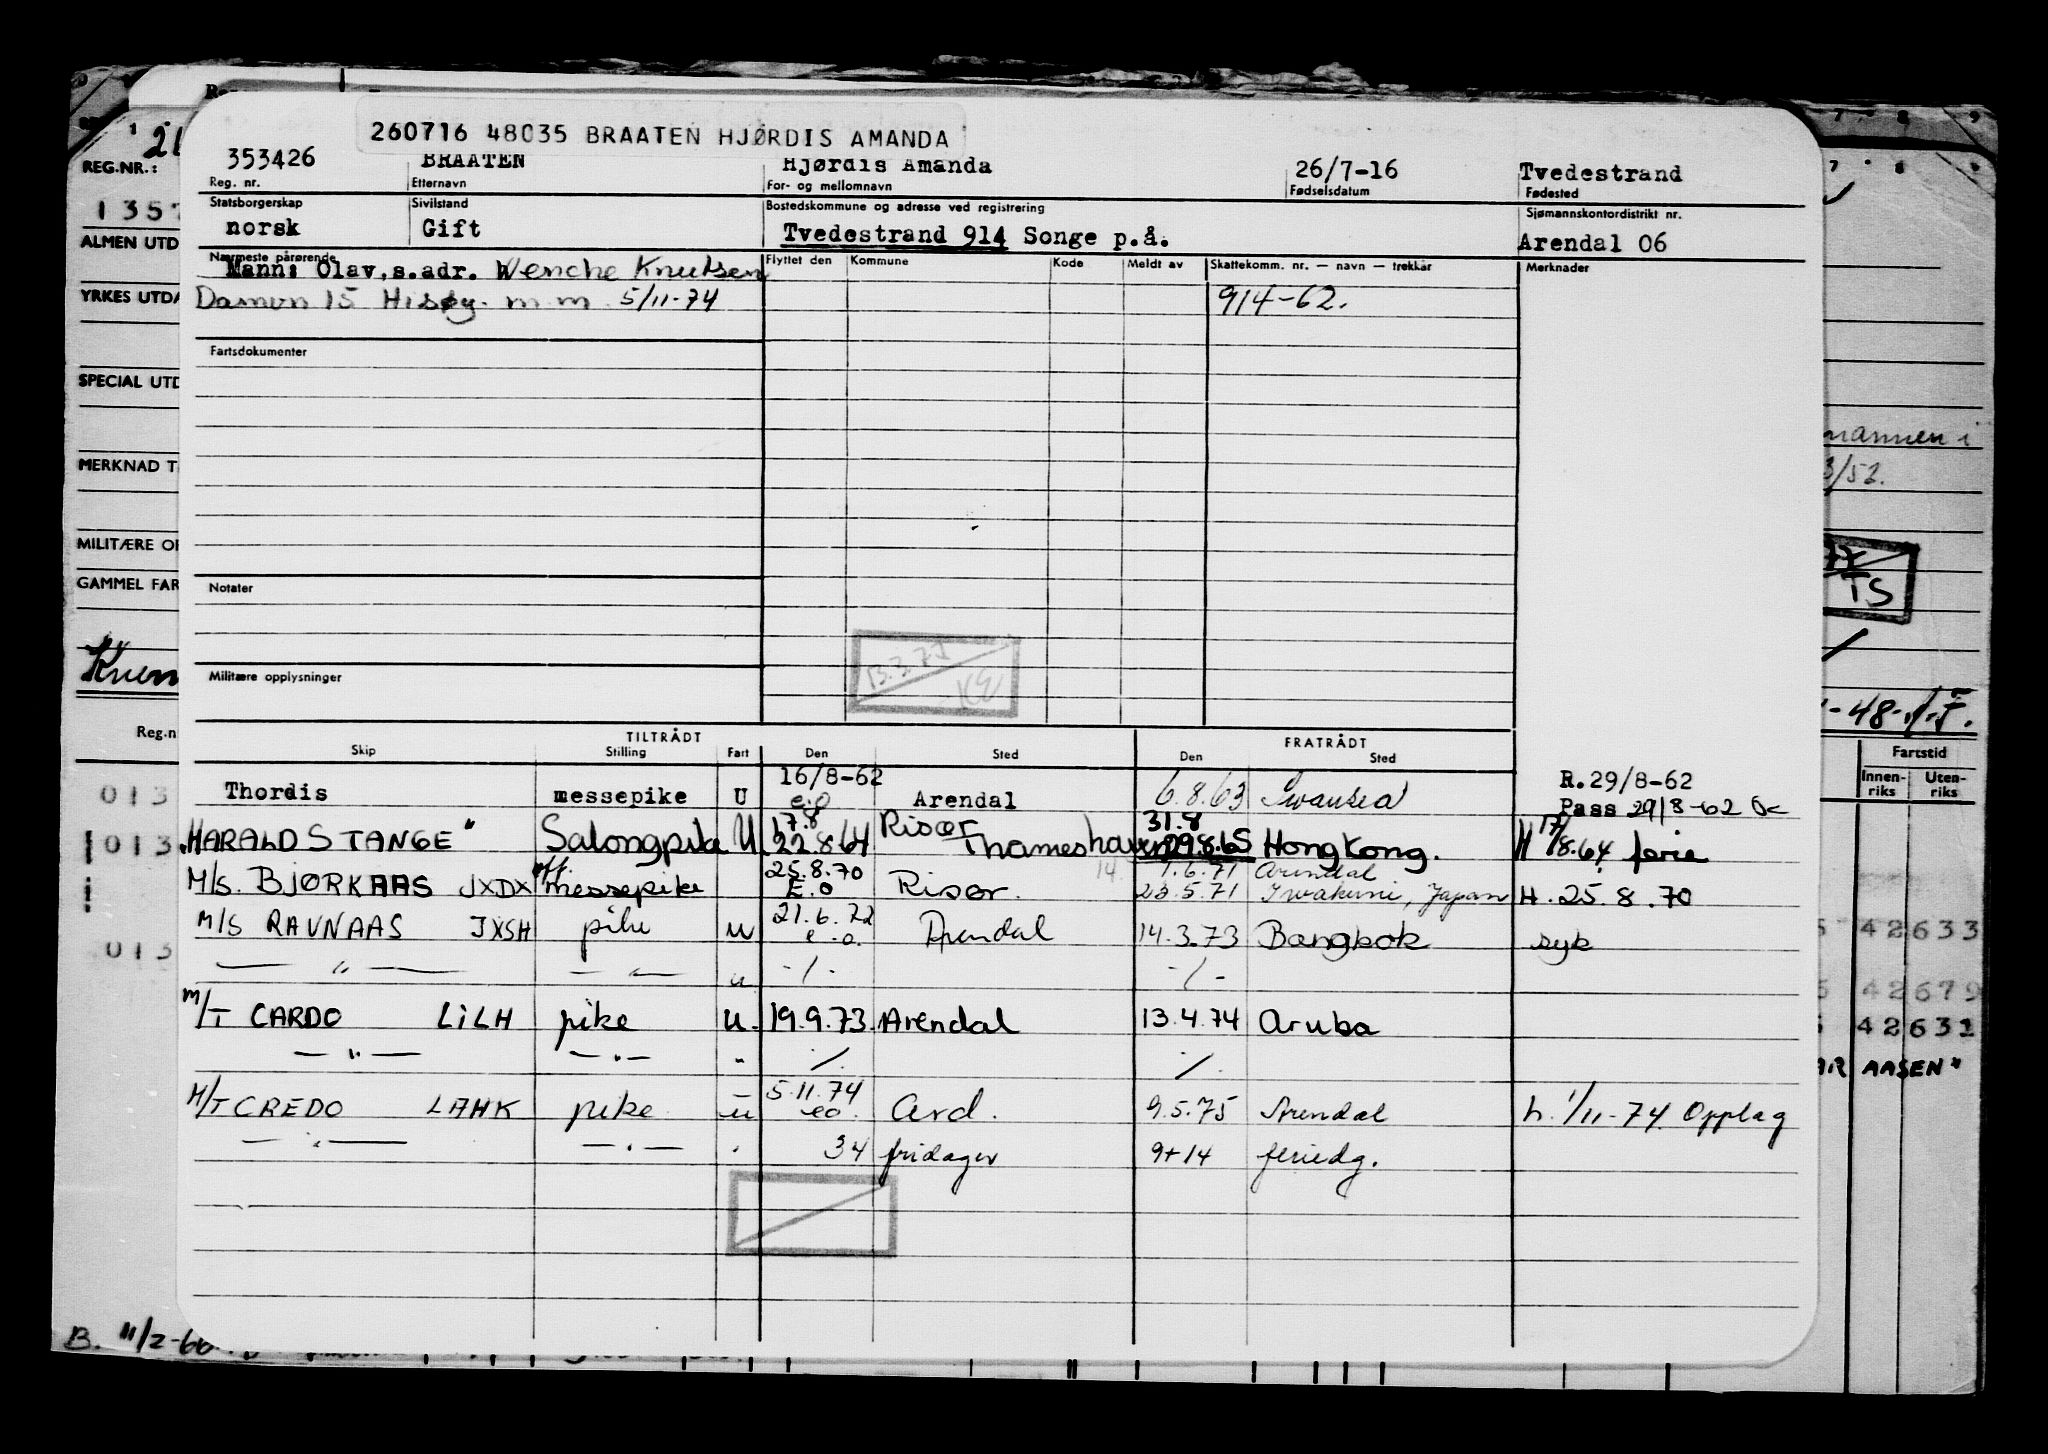 260716 48035 BRAATEN HJØRDIS AMANDA
353426 BRAATEN Hjørdis Amanda 26/7-16 Tvedestrand
Reg. nr. Etternavn For- og mellomnavn Fødselsdatum Fødested
Statsborgerskap Sivilstand Bostedskommune og adresse ved registrering Sjømannskontordistrikt nr.
norsk Gift Tvedestrand 914 Songe p.å. Arendal 06
Nærmeste pårørende Flyttet den Kommune Kode Meldt av Skattekomm. nr. — navn — trekkår Merknader
Mann: Olav, s.adr. Wenche Knutsen
Damen 15 Hisøy. m.m. 5/11-74 914-62.
Fartsdokumenter
Notater
13.3.75
Militære opplysninger
TILTRÅDT FRATRÅDT
Skip Stilling Fart Den Sted Den Sted
16/8-62 R.29/8-62
Thordis messepike U e.o Arendal 6.8.63 Swansea Pass 29/8-62
17.8 Risør 31.8
"HARALD STANGE" Salongpike U 22.8.64 Thameshaven 29.8.65 Hongkong. H 17/8.64 ferie
25.8.70 14. 1.6.71 Arendal
M/S. BJØRKAAS JXDX messepike E.O Risør. 23.5.71 Iwakuni, Japan H. 25.8.70
21.6.72
M/S RAVNAAS JXSH pike u e.o. Arendal 14.3.73 Bangkok syk
— " — — " — u -/- -/-
M/T CARDO LILH pike u. 19.9.73 Arendal 13.4.74 Aruba
— " — — " — " ./. ./.
5.11.74
M/T CREDO LAHK pike u eo. Ard. 9.5.75 Arendal h. 1/11-74 Opplag
— " — — " — " 34 fridager 9+14 feriedg.
REG.NR.:
1357
ALMEN UTD
YRKES UTDA
SPECIAL UTD
MERKNAD T
MILITÆRE OP
GAMMEL FAR
Reg.n
013
013
013
B. 11/2-60
mannen i
3/52.
TS
-48-
Fartstid
Innen-riks Uten-riks
42633
42679
42631
AASEN"